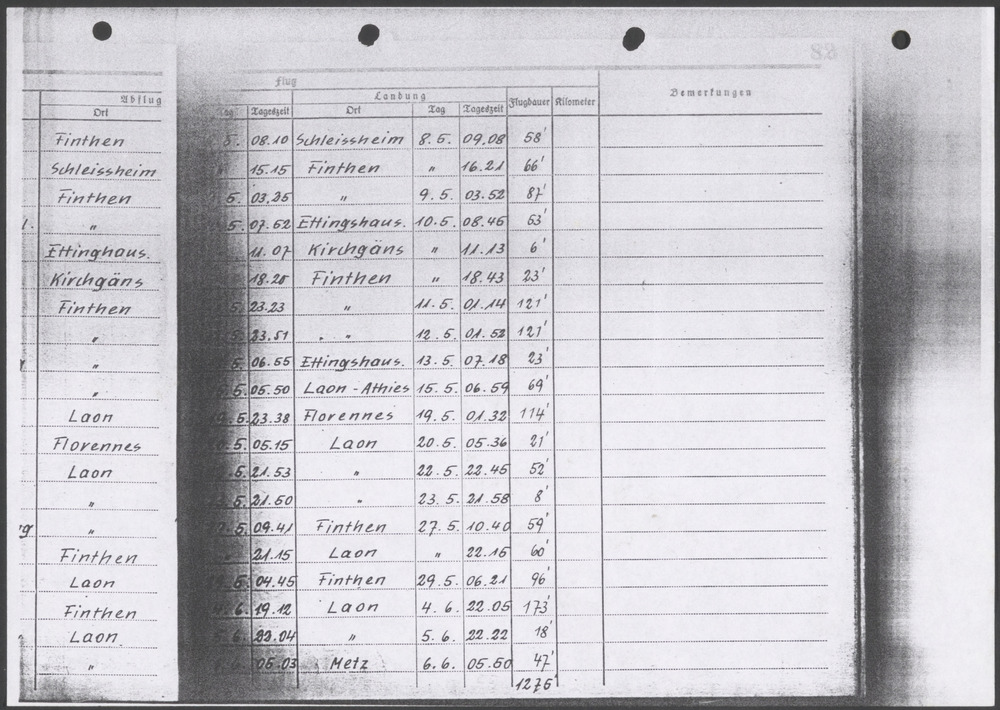 88
Flug
Abflug
Landung
Bemerkungen
Ort Tag Tageszeit Ort Tag Tageszeit Flugdauer Kilometer
Finthen 8. 08.10 Schleissheim 8.5. 09.08 58'
Schleissheim 15.15 Finthen " 16.21 66'
Finthen 5. 03.25 " 9.5. 03.52 87'
" 5. 07.52 Ettingshaus. 10.5. 08.45 53'
Ettinghaus. 11.07 Kirchgäns " 11.13 6'
Kirchgäns 18.20 Finthen " 18.43 23'
Finthen 5. 23.23 " 11.5. 01.14 121'
" 5. 23.51 " 12.5. 01.52 121'
" 5. 06.55 Ettingshaus. 13.5. 07.18 23'
" 5. 05.50 Laon-Athies 15.5. 06.59 69'
Laon 5. 23.38 Florennes 19.5. 01.32 114'
Florennes 5. 05.15 Laon 20.5. 05.36 21'
Laon 5. 21.53 " 22.5. 22.45 52'
" 5. 21.50 " 23.5. 21.58 8'
" 5. 09.41 Finthen 27.5. 10.40 59'
Finthen 21.15 Laon " 22.15 60'
Laon 5. 04.45 Finthen 29.5. 06.21 96'
Finthen 6. 19.12 Laon 4.6. 22.05 173'
Laon 6. 22.04 " 5.6. 22.22 18'
" 6. 05.03 Metz 6.6. 05.50 47'
1275